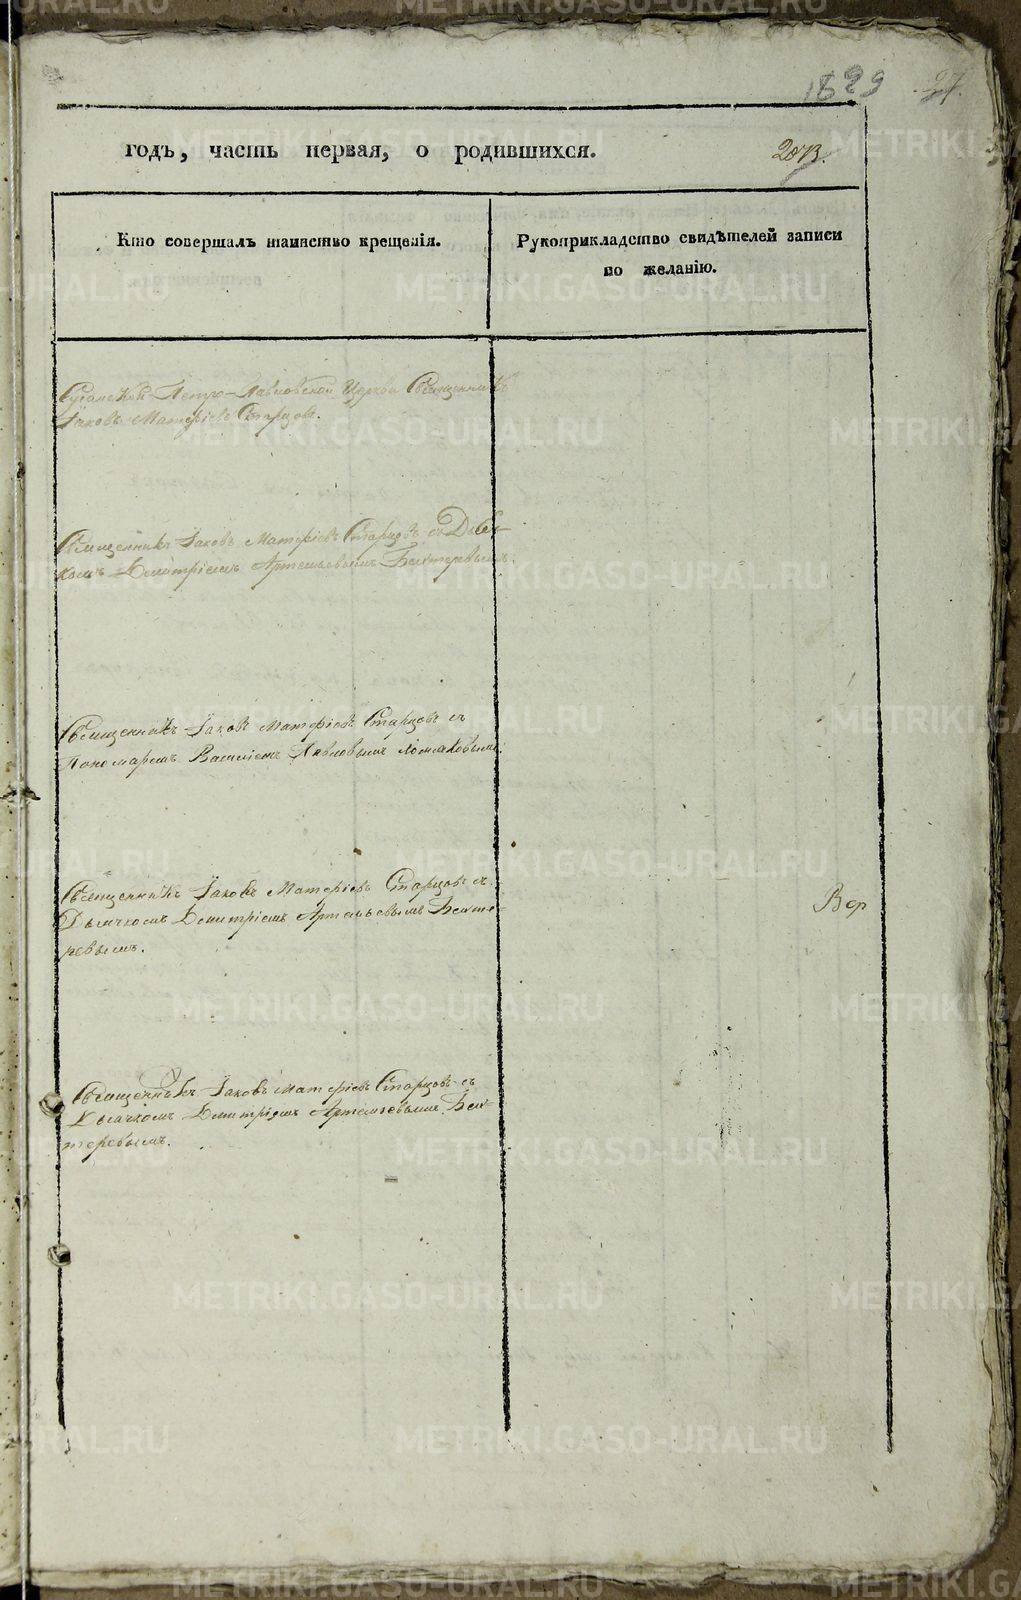 годъ, часть первая, о родившихся.
Кто совершалъ таинство крещенія.
Рукоприкладство свидѣтелей записи
по желанію.
Петро-Павловской Церкви Священникъ
Іаковъ Матѳіевъ Старцовъ.
Священникъ Іаковъ Матѳіевъ Старцовъ съ Дьяч-
комъ Димитріемъ Артемьевымъ Бехтеревымъ.
Священникъ Іаковъ Матѳіевъ Старцовъ съ
Пономаремъ Василіемъ Павловымъ
Священникъ Іаковъ Матѳіевъ Старцовъ съ
Дьячкомъ Димитріемъ Артемьевымъ Бехте-
ревымъ.
Вер
Священникъ Іаковъ Матѳіевъ Старцовъ съ
Дьячкомъ Димитріемъ Артемьевымъ Бех-
теревымъ.
METRIKI.GASO-URAL.RU